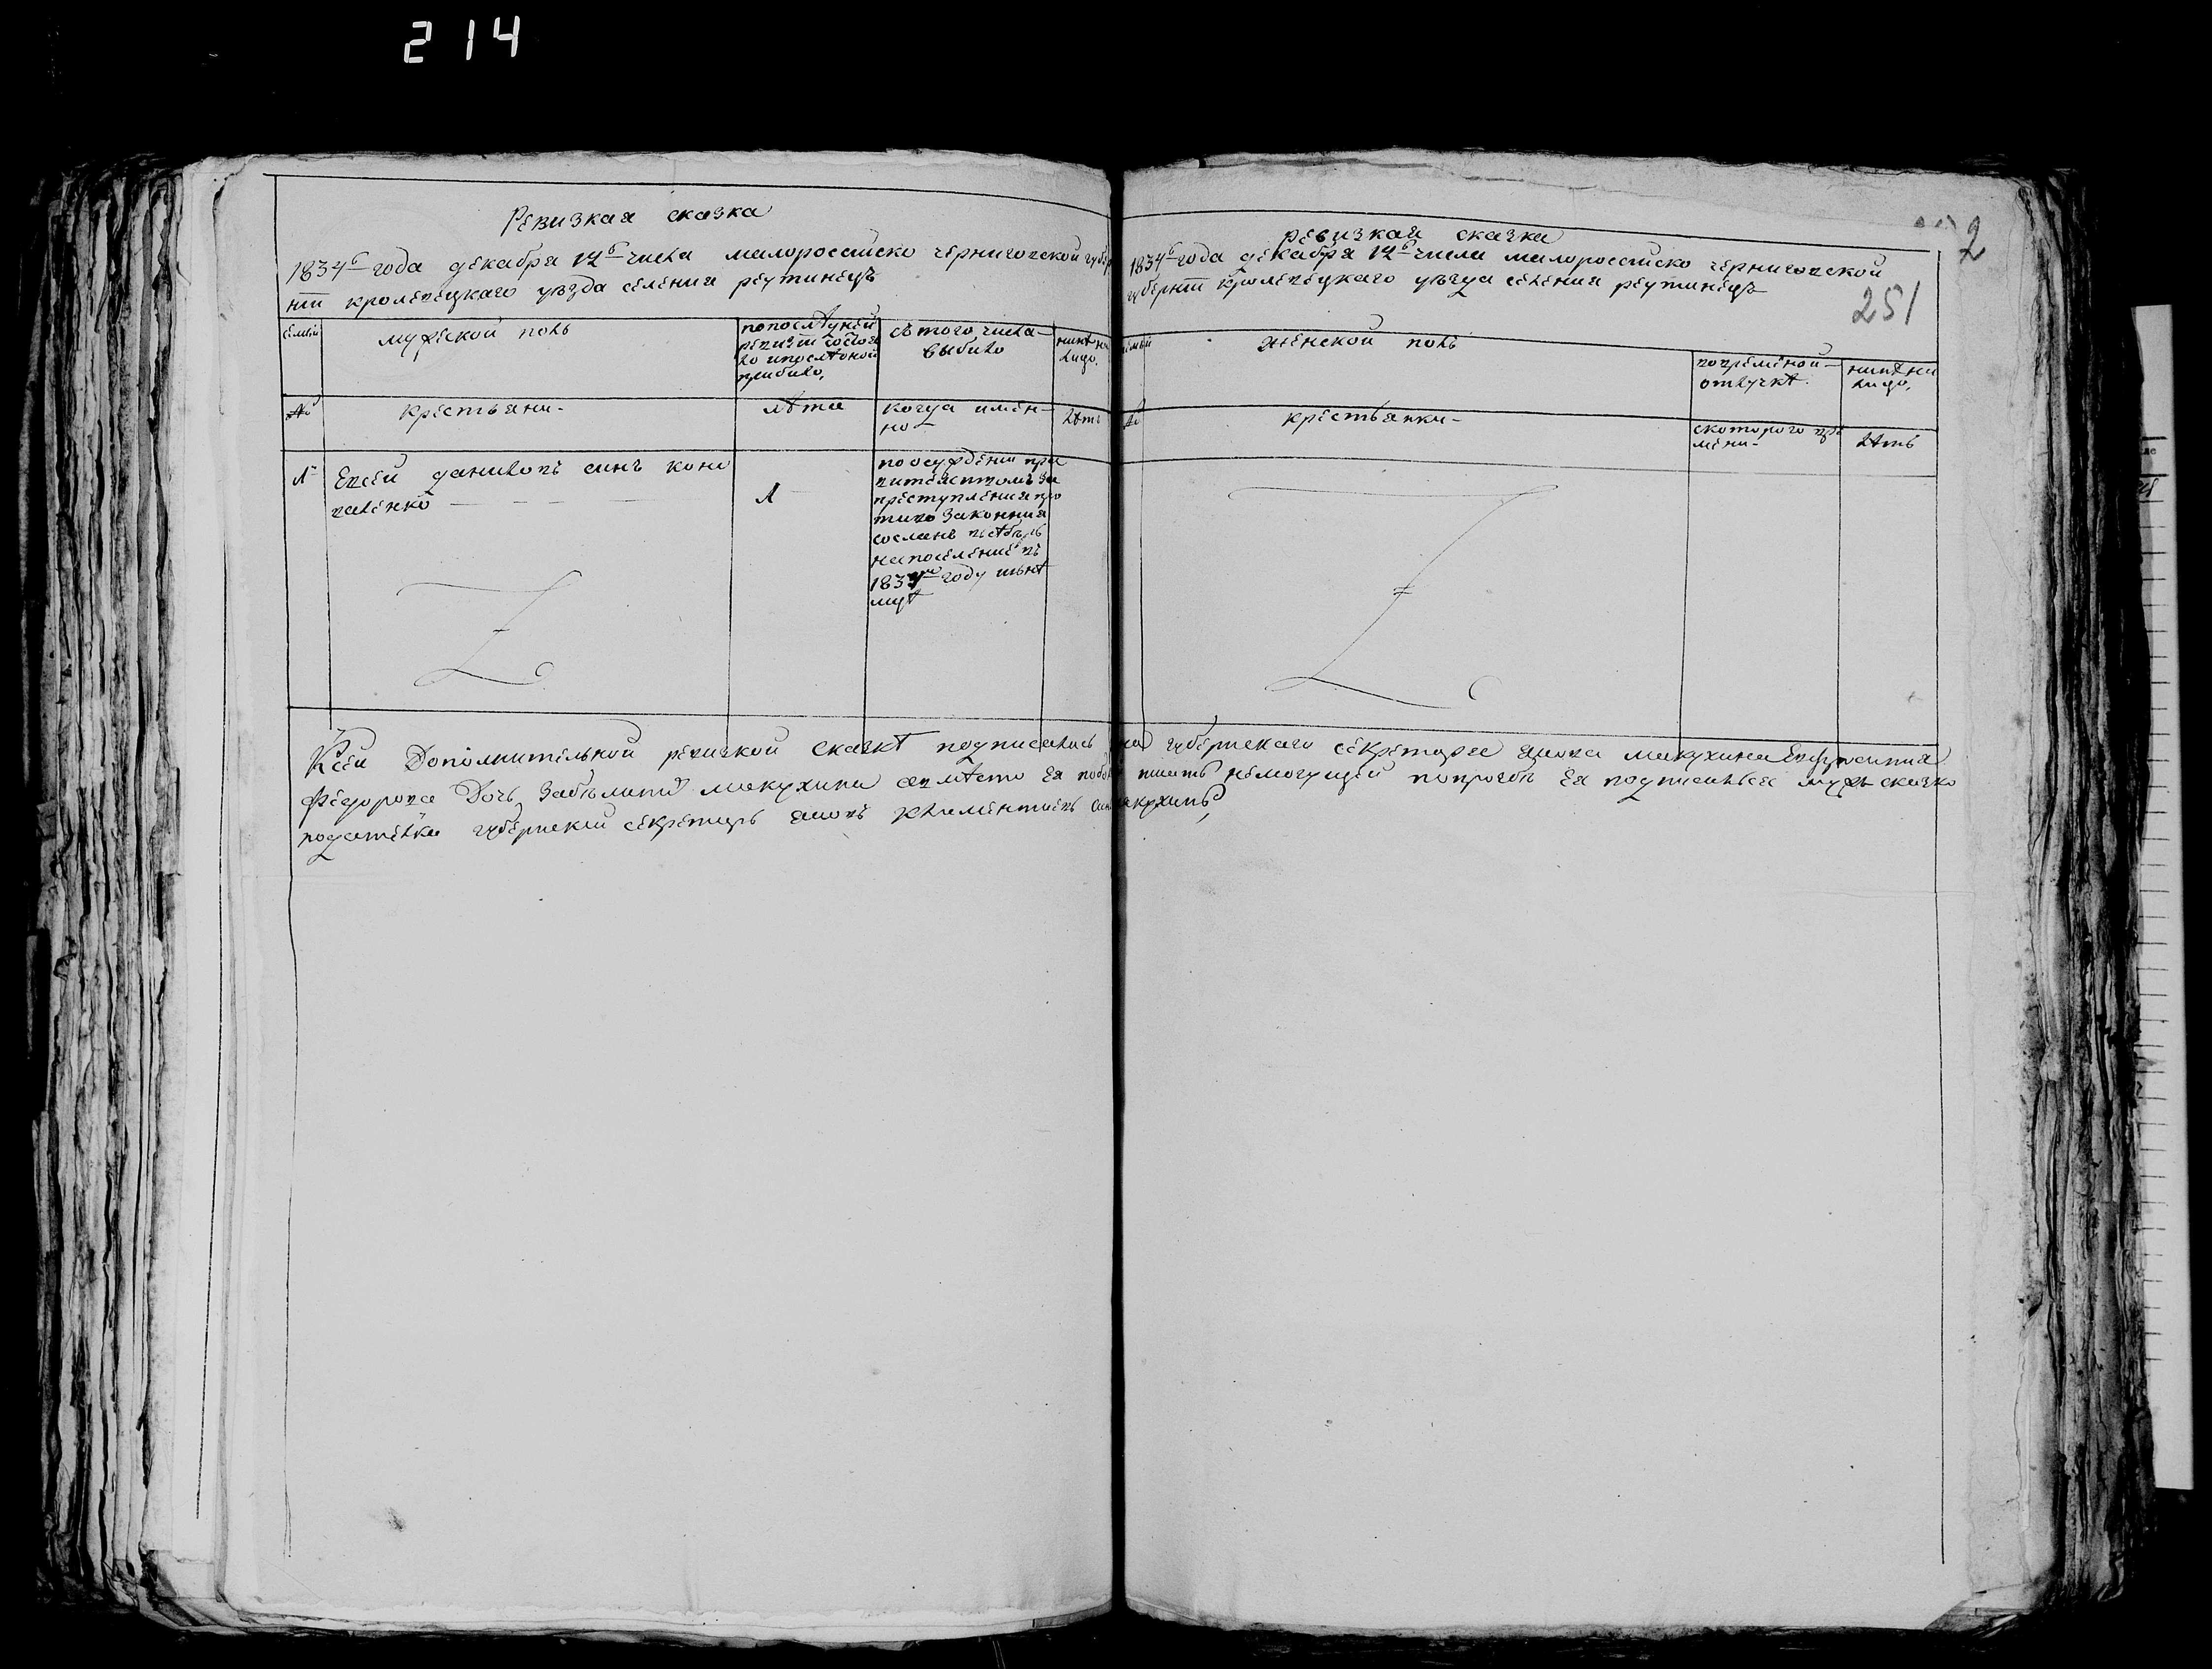 214
Ревизкая сказка
1834го года декабря 12го числа малороссийско черниговской губер
нии кролевецкаго уѣзда селения реутинецъ
семьи
мужеской полъ
по последней
ревизии состоя
ло и после оной
прибило,
съ того числа
выбило
нинѣ на
лицо.
№
крестьяни
лѣта
когда имен-
но
лѣтъ
1
Евсей даниловъ синъ коно
валенко
1
по осуждении пра
вителством за
преступления про
тиво закония
сосланъ
на поселение въ
1834м году
Ревизкая сказка
1834го года декабря 12го числа малороссийско черниговской
губернии кролевецкаго уѣзда селения реутинецъ
2
251
семьи
женской полъ
во временной
отлучкѣ.
нинѣ на
лицо,
№
крестьянки
с которого вре
мени
лѣтъ
К сей Дополнителной ревизкой сказкѣ подписалась губернскаго секретаря якова макухина Евфросиния
Федорова Дочъ макухина а вмѣсто Ея писать немогущей по прозбѣ Ея подписался мужъ сказко
подателки губернский секретарь яковъ климентиевъ синъ макухинъ